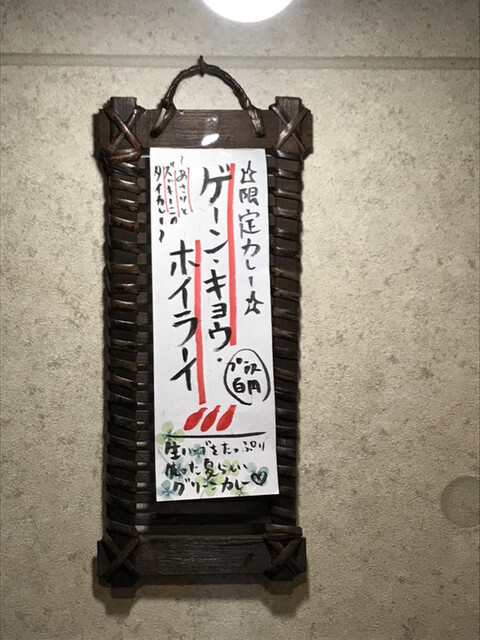 ☆限定カレー☆
ゲーン・キョウ・
ホイラーイ
〜あさりと
ズッキーニの
タイカレー〜
プラス
百円
生ハーブをたっぷり
使った夏らしい
グリーンカレー♡